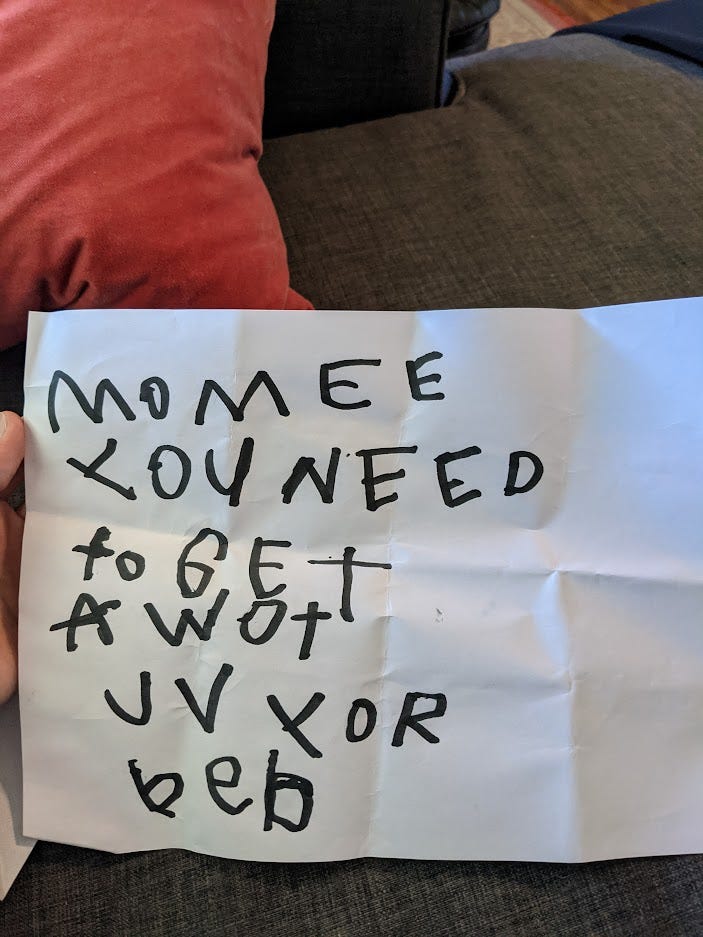 MOMEE
YOU NEED
to GET
A WOT
UV YOR
beb